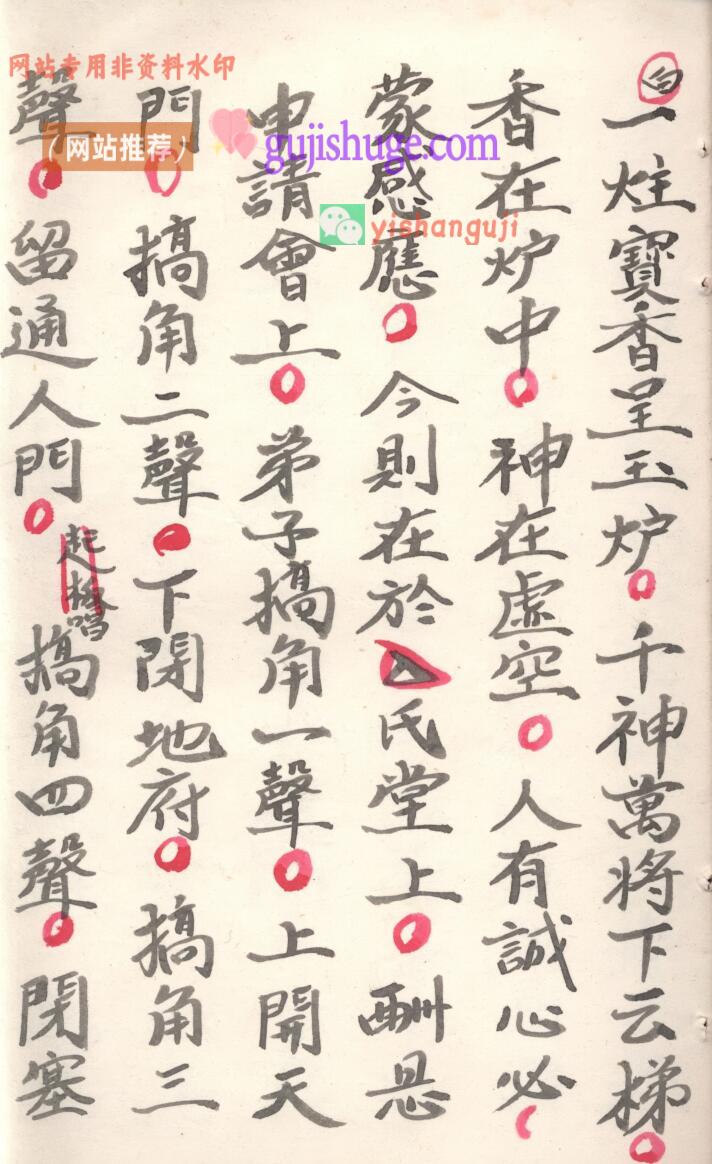 白
一炷寶香呈玉炉千神萬将下云梯
香在炉中神在虚空人有誠心必
蒙感應今則在於厶氏堂上酬恩
申請會上弟子搞角一聲上開天
門搞角二聲下閉地府搞角三
聲留通人門搞角四聲閉塞
起板唱
网站专用非资料水印
(网站推荐)
gujishuge.com
yishanguji